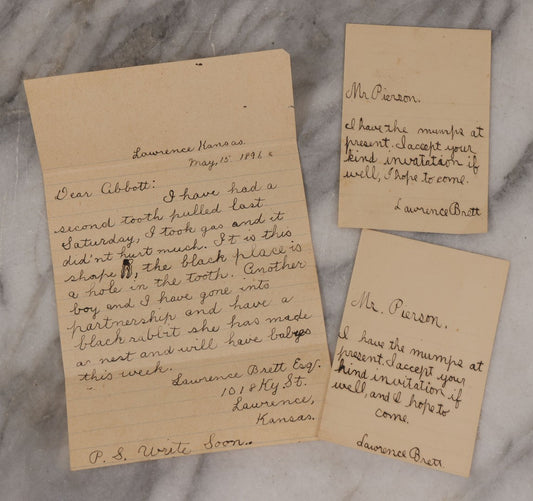 Lawrence Kansas.
May, 15. 1896.
Dear Abbott:
I have had a
second tooth pulled last
Saturday, I took gas and it
did'nt hurt much. It is this
shape , the black place is
a hole in the tooth. Another
boy and I have gone into
partnership and have a
black rabbit she has made
a nest and will have babyes
this week.
Lawrence Brett Esq.
1018 Ky St.
Lawrence,
Kansas.
P. S. Write Soon.
Mr Pierson.
I have the mumps at
present. I accept your
kind invatation if
well, I hope to come.
Lawrence Brett
Mr. Pierson.
I have the mumps at
present. I accept your
kind invitation if
well, and I hope to
come.
Lawrence Brett.